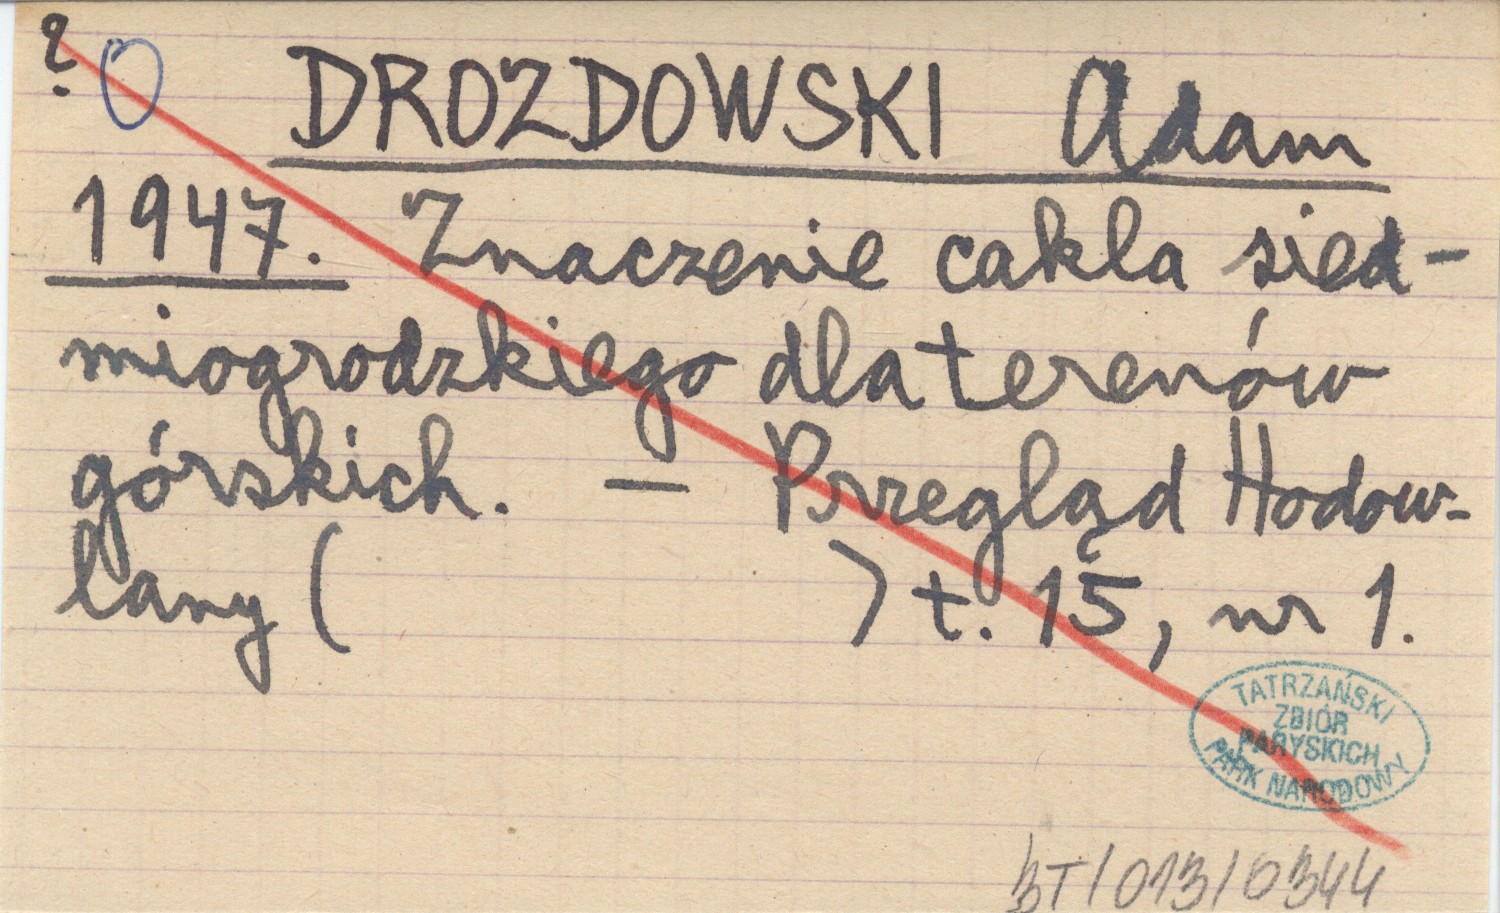 ? O DROZDOWSKI Adam
1947. Znaczenie cakla sied-
miogrodzkiego dla terenów
górskich. — Przegląd Hodow-
lany ( ) t. 15, nr 1.
TATRZAŃSKI
ZBIÓR
PARYSKICH
PARK NARODOWY
BT/013/0344